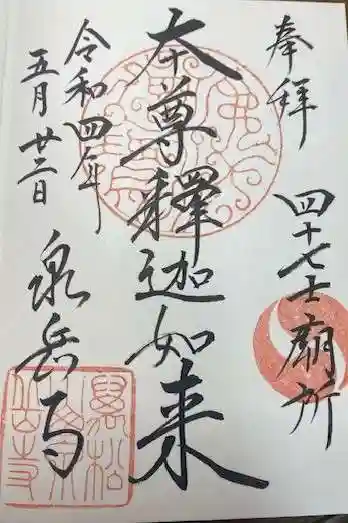 奉拝
四十七士廟所
本尊釋迦如来
令和四年
五月廿二日
泉岳寺
萬松山泉岳寺